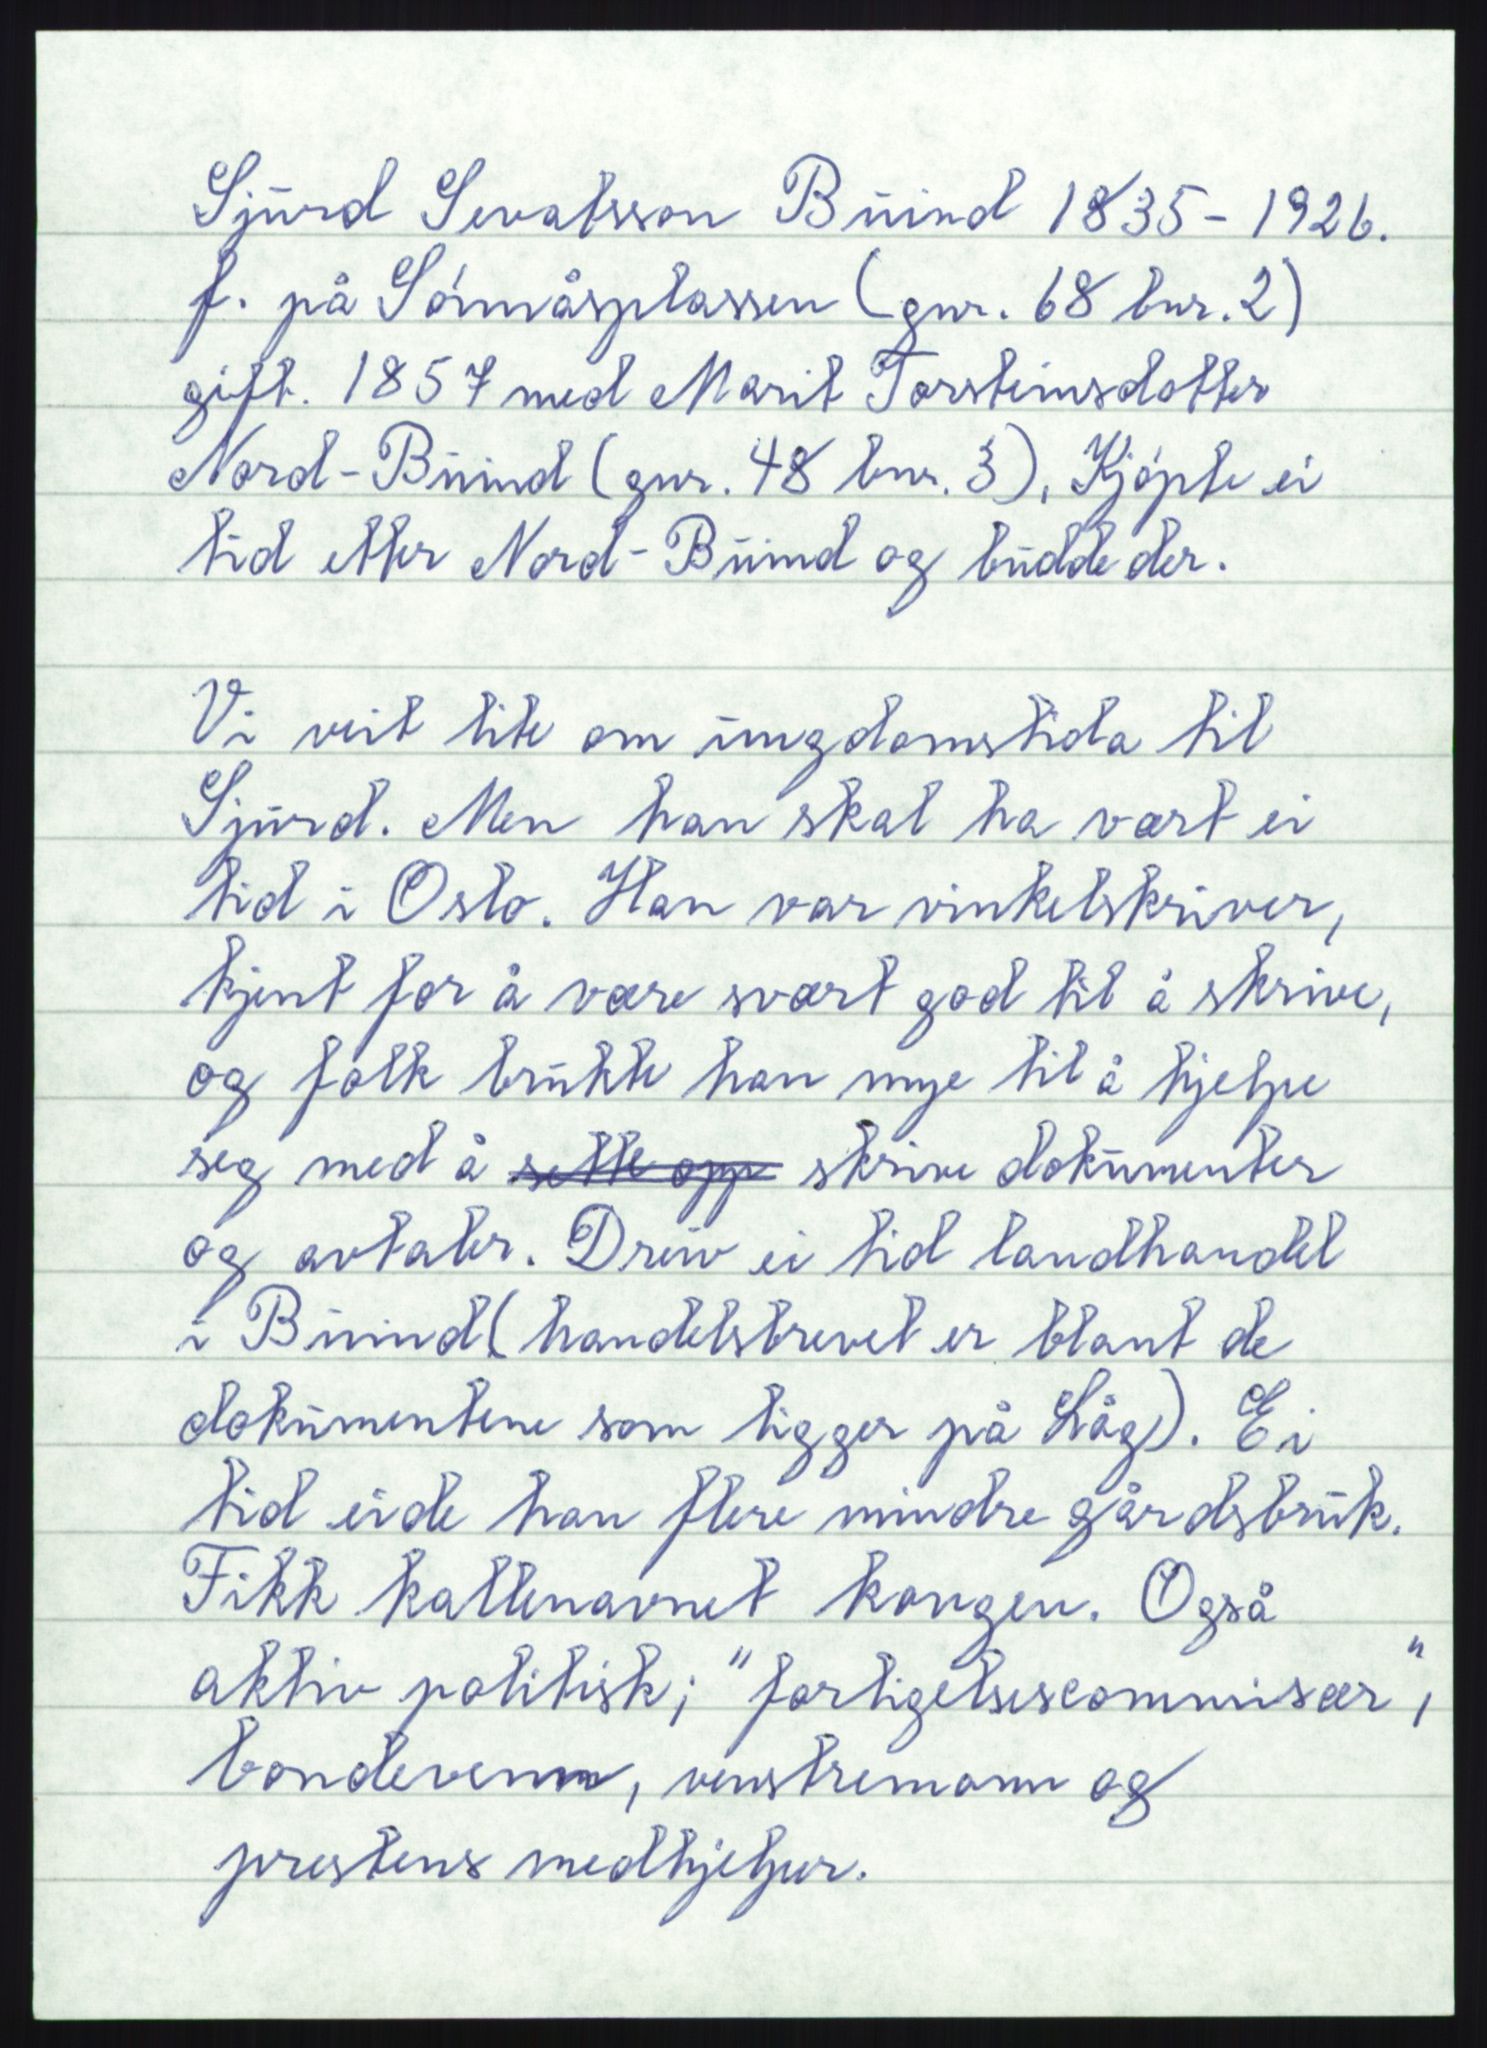 Sjurd Sevatsson Buind 1835-1926.
f. på Sørmåsplassen (gnr. 68 bnr. 2)
gift. 1857 med Marit Torsteinsdotter
Nord-Buind (gnr. 48 bnr. 3), Kjøpte ei
tid etter Nord-Buind og budde der.
Vi veit lite om ungdomstida til
Sjurd. Men han skal ha vært ei
tid i Oslo. Han var vinkelskriver,
kjent for å være svært god til å skrive,
og folk brukte han mye til å hjelpe
seg med å sette opp skrive dokumenter
og avtaler. Dreiv ei tid landhandel
i Buind (handelsbrevet er blant de
dokumentene som ligger på Låg). Ei
tid eide han flere mindre gårdsbruk.
Fikk kallenavnet kongen. Også
aktiv politisk; "forligelsescommisær",
bondevenn, venstremann og
prestens medhjelper.